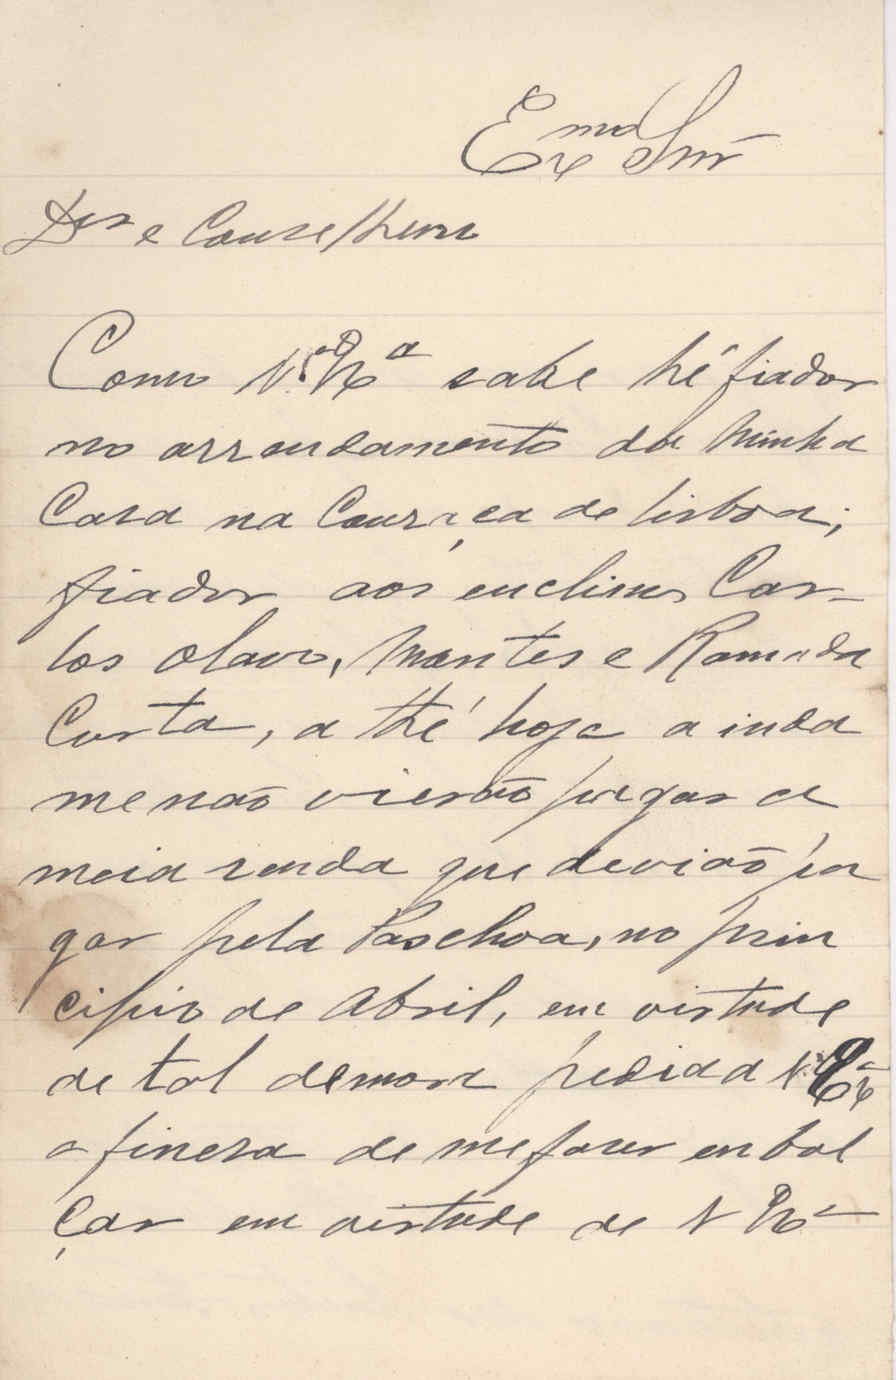 Exmo Snr
Dr e Conselheiro
Como V. Exa sabe hé fiador
no arrendamento da minha
Casa na Couraça de Lisboa;
fiador aos enclinos Car-
los Olavo, Montes e Ramada
Curta, athé hoje ainda
me não vierão pagar a
meia renda que devião pa
gar pela Paschoa, no prin
cipio de Abril, em virtude
de tal demora pedia a V. Exa
a finesa de me fazer enbol
çar em virtude de V Exa